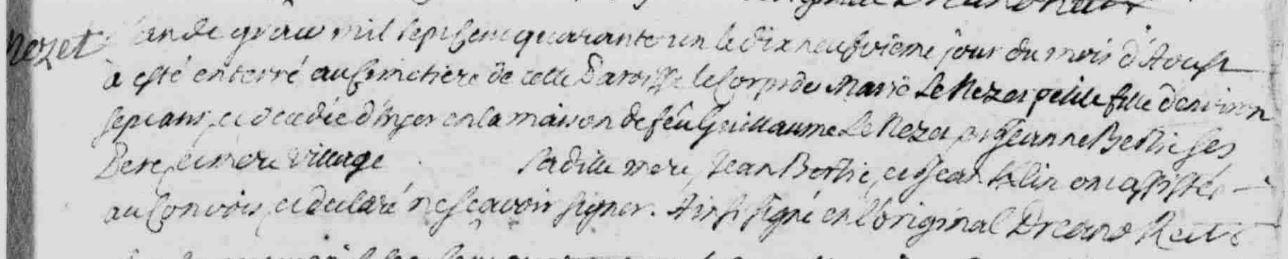 Nezet
L'an de grace mil sept cent quarante un le dix neufvieme jour du mois d'Aoust
a esté enterré au Cimetiere de cette Paroisse le Corps de Marie Le Nezet petite fille d'environ
sept ans, et decedée d'hyer en la maison de feu Guillaume Le Nezet et Jeanne Berthe ses
Pere et mere village
laditte mere, Jean Berthe, et Jean ont assistés
au Convois, et declaré ne sçavoir signer. Ainsi signé en l'original Dreano Rect